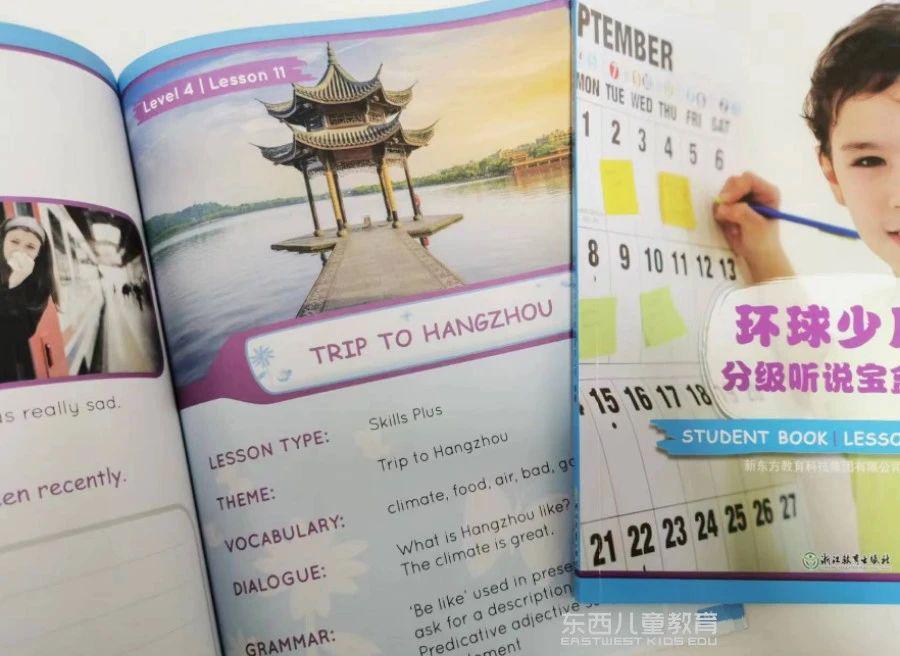 s really sad.
en recently.
Level 4 | Lesson 11
TRIP TO HANGZHOU
LESSON TYPE: Skills Plus
THEME: Trip to Hangzhou
VOCABULARY: climate, food, air, bad,
DIALOGUE: What is Hangzhou like?
The climate is great.
GRAMMAR: 'Be like' used in
ask for a description
Predicative adjective
PTEMBER
MON TUE WED THU FRI SAT
1 2 3 4 5 6
8 9 10 11 12 13
15 16 17 18
21 22 23 24 25 26 27
环球少
分级听说宝
STUDENT BOOK | LESSO
新东方教育科技集团有限公司
浙江教育出版社
东西儿童教育
EASTWEST KIDS EDU